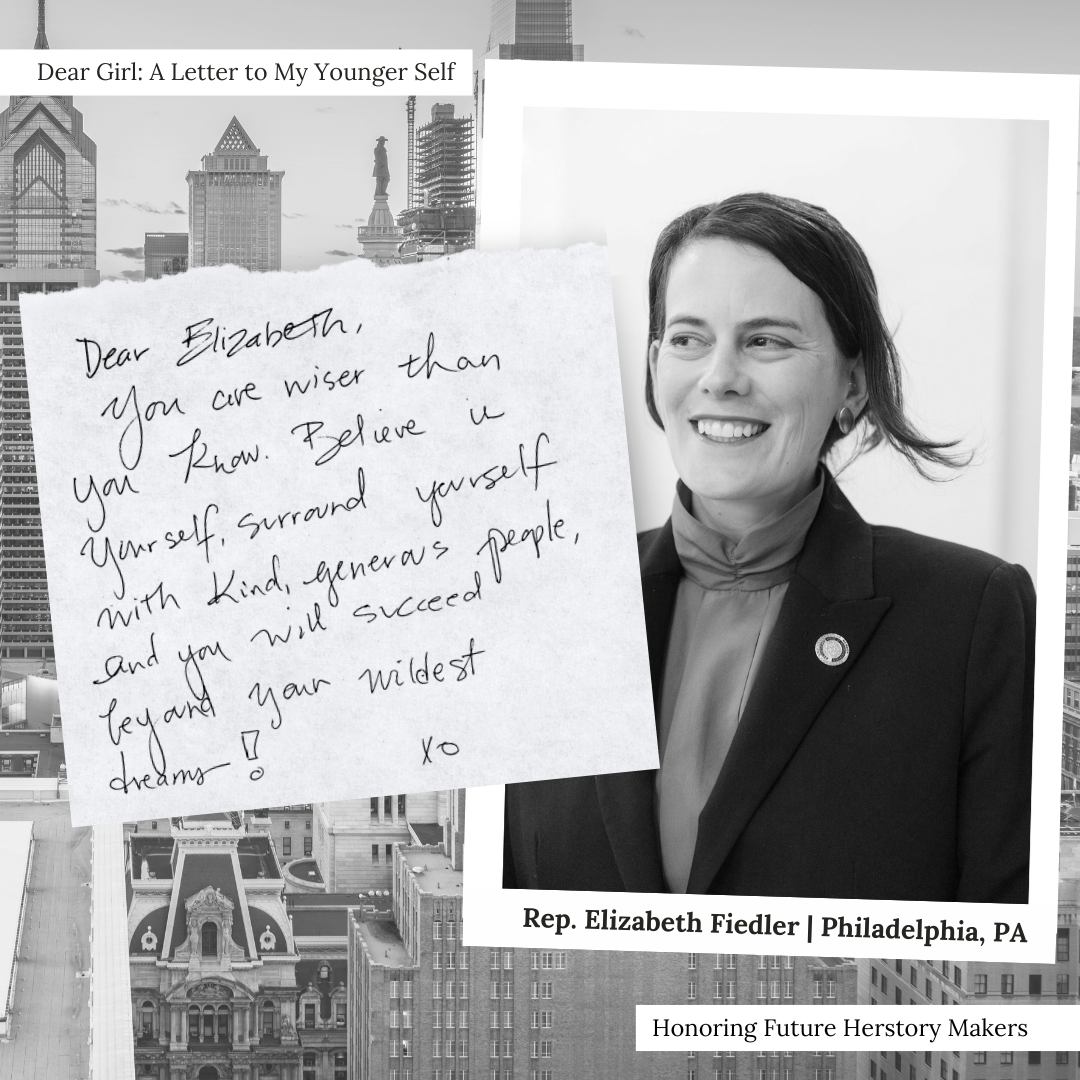 Dear Girl: A Letter to My Younger Self
Dear Elizabeth,
You are wiser than
you know. Believe in
yourself, surround yourself
with kind, generous people,
and you will succeed
beyond your wildest
dreams!
XO
Rep. Elizabeth Fiedler | Philadelphia, PA
Honoring Future Herstory Makers